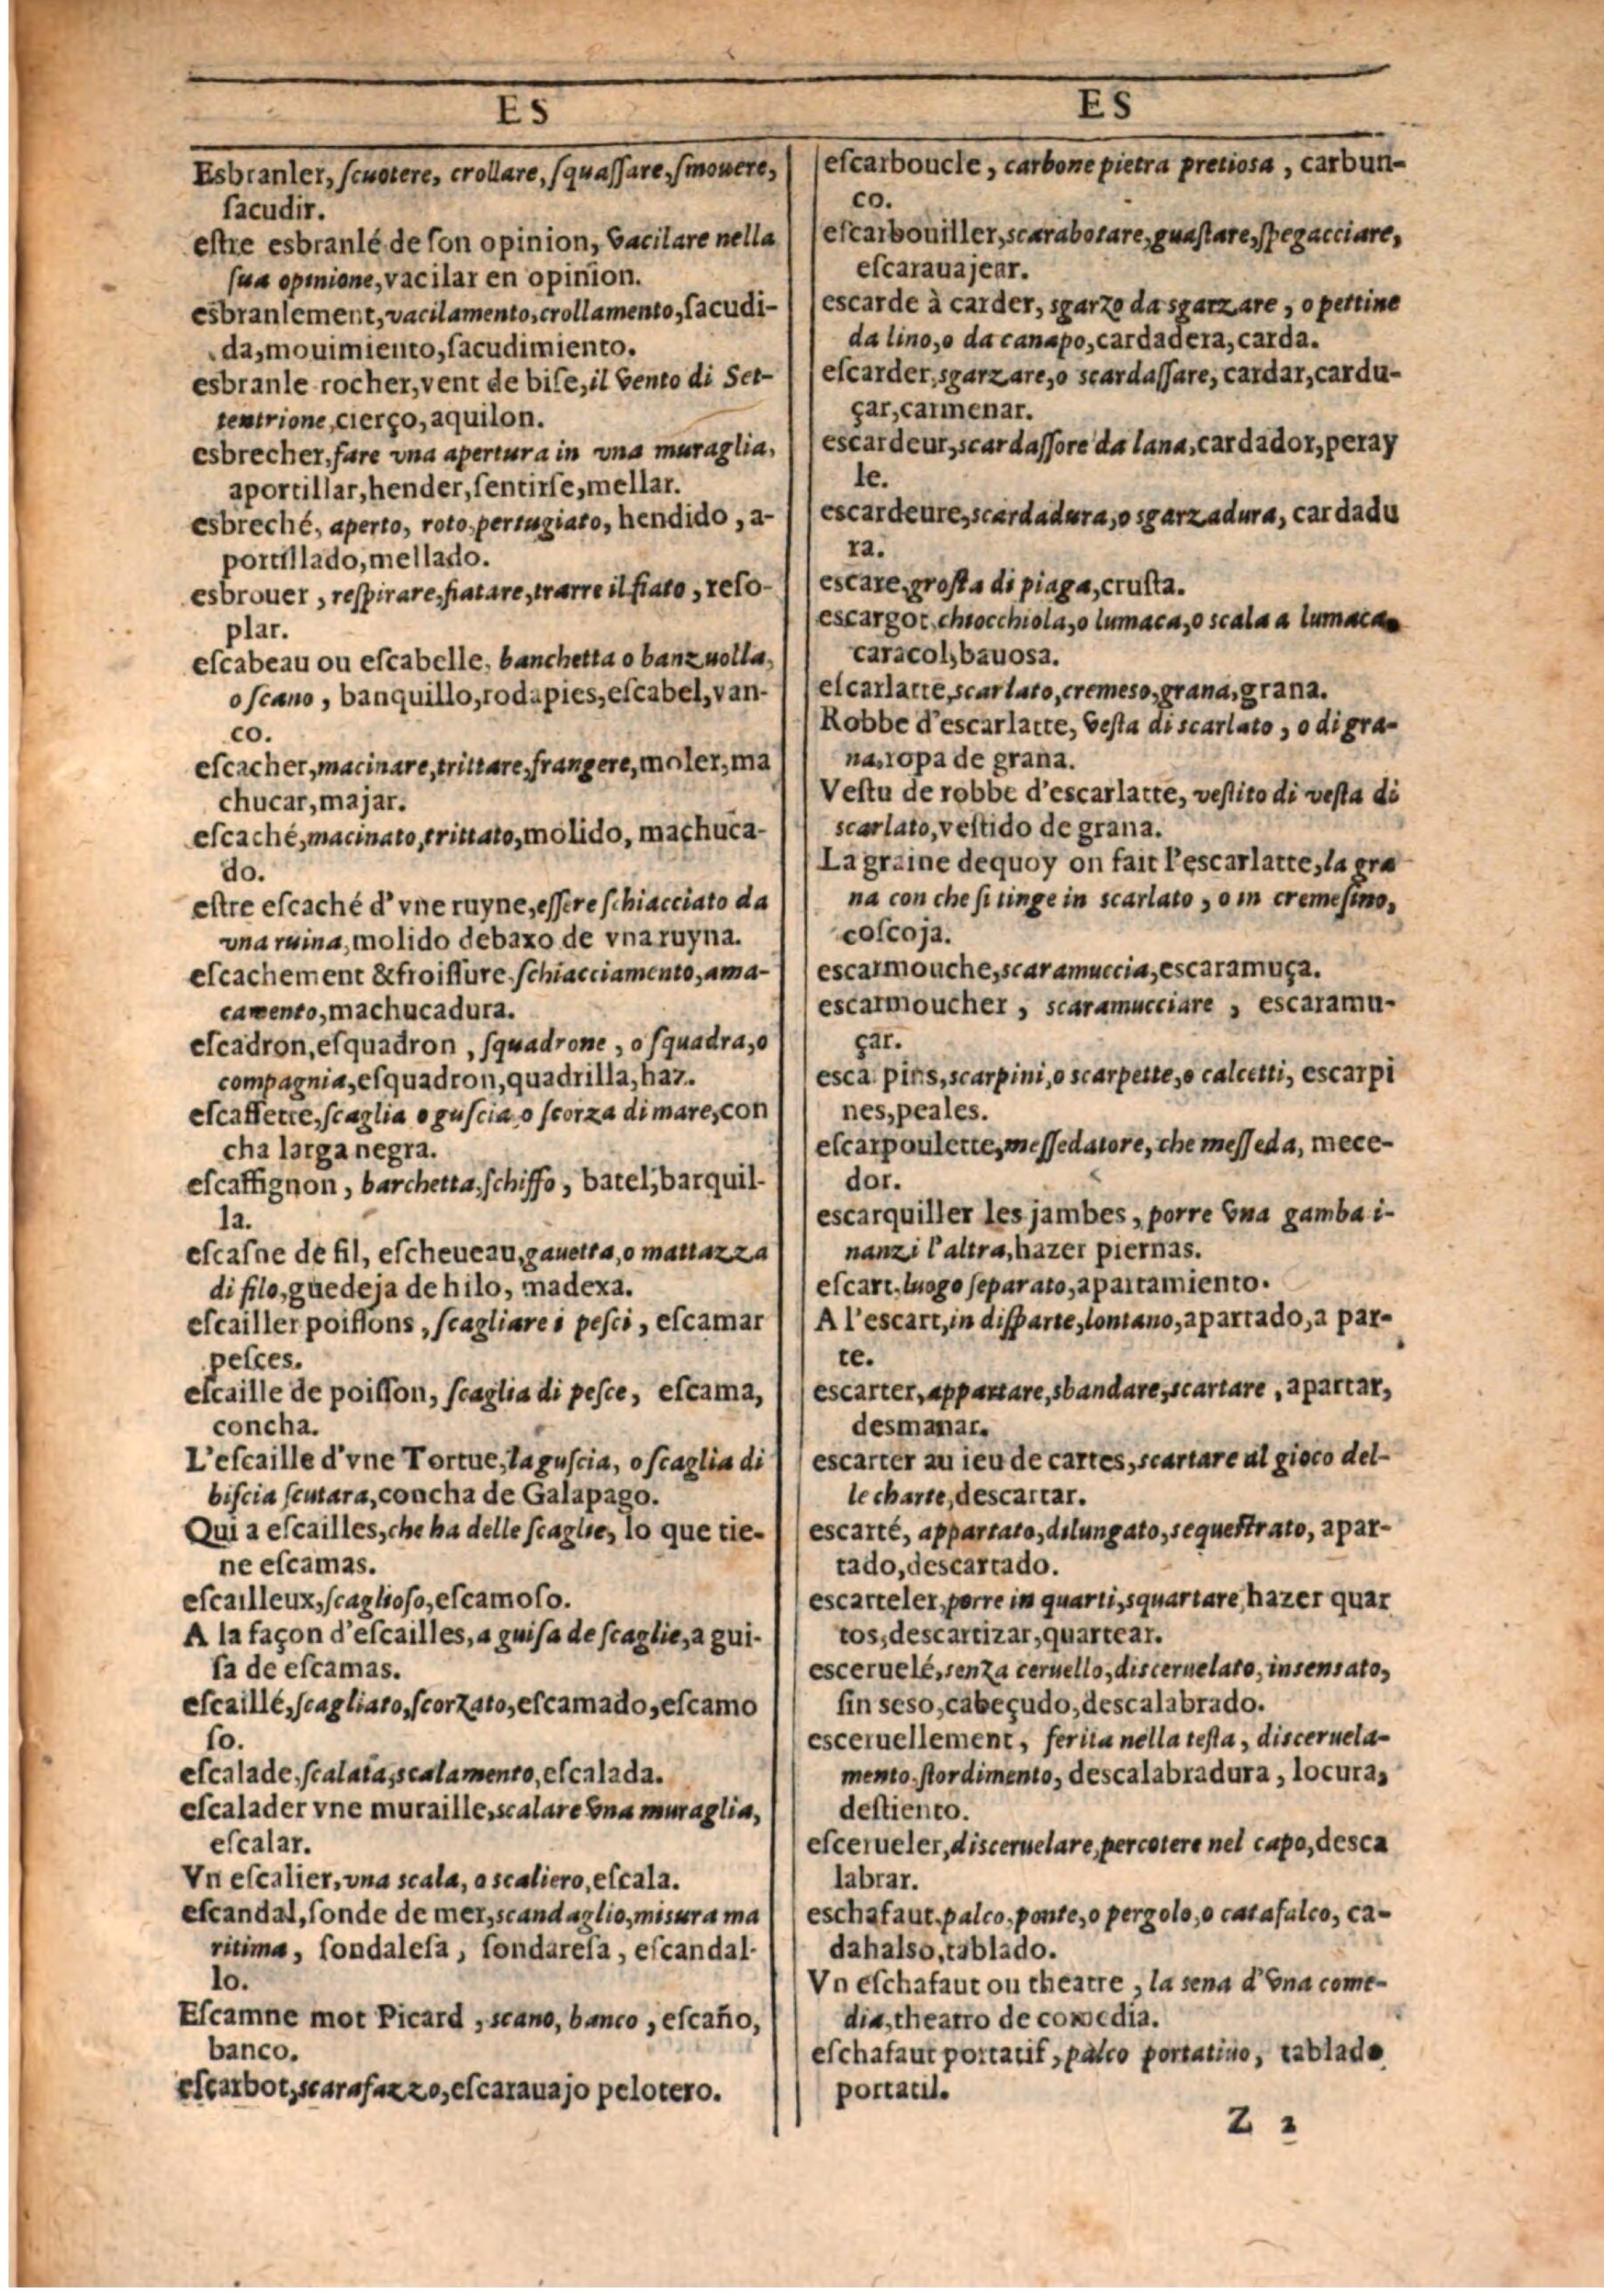 ES
Esbranler, ſcuotere, crollare, ſquaſſare, ſmouere,
ſacudir.
eſtre esbranlé de ſon opinion, vacilare nella
ſua opinione, vacilar en opinion.
esbranlement, vacilamento, crollamento, ſacudi-
da, mouimiento, ſacudimiento.
esbranle rocher, vent de biſe, il vento di Set-
tentrione, cierço, aquilon.
esbrecher, fare vna apertura in vna muraglia,
aportillar, hender, ſentirſe, mellar.
esbreché, aperto, roto, pertugiato, hendido, a-
portillado, mellado.
esbrouer, reſpirare, fiatare, trarre il fiato, reſo-
plar.
eſcabeau ou eſcabelle, banchetta o banzuolla,
o ſcano, banquillo, rodapies, eſcabel, van-
co.
eſcacher, macinare, trittare, frangere, moler, ma
chucar, majar.
eſcaché, macinato, trittato, molido, machuca-
do.
eſtre eſcaché d'vne ruyne, eſſere ſchiacciato da
vna ruina, molido debaxo de vna ruyna.
eſcachement & froiſſure, ſchiacciamento, ama-
camento, machucadura.
eſcadron, eſquadron, ſquadrone, o ſquadra, o
compagnia, eſquadron, quadrilla, haz.
eſcaffette, ſcaglia o guſcia o ſcorza di mare, con
cha larga negra.
eſcaffignon, barchetta, ſchiffo, batel, barquil-
la.
eſcaſne de fil, eſcheueau, gauetta, o mattazza
di filo, guedeja de hilo, madexa.
eſcailler poiſſons, ſcagliare i peſci, eſcamar
peſces.
eſcaille de poiſſon, ſcaglia di peſce, eſcama,
concha.
L'eſcaille d'vne Tortue, la guſcia, o ſcaglia di
biſcia ſcutara, concha de Galapago.
Qui a eſcailles, che ha delle ſcaglie, lo que tie-
ne eſcamas.
eſcailleux, ſcaglioſo, eſcamoſo.
A la façon d'eſcailles, a guiſa de ſcaglie, a gui-
ſa de eſcamas.
eſcaillé, ſcagliato, ſcorzato, eſcamado, eſcamo
ſo.
eſcalade, ſcalata, scalamento, eſcalada.
eſcalader vne muraille, scalare vna muraglia,
eſcalar.
Vn eſcalier, vna scala, o scaliero, eſcala.
eſcandal, ſonde de mer, scandaglio, misura ma
ritima, ſondaleſa, ſondareſa, eſcandal-
lo.
Eſcamne mot Picard, scano, banco, eſcaño,
banco.
eſcarbot, scarafazzo, eſcarauajo pelotero.
ES
eſcarboucle, carbone pietra pretiosa, carbun-
co.
eſcarbouiller, scarabotare, guaſtare, ſpegacciare,
eſcarauajear.
escarde à carder, sgarzo da sgarzare, o pettine
da lino, o da canapo, cardadera, carda.
eſcarder, sgarzare, o scardaſſare, cardar, cardu-
çar, carmenar.
escardeur, scardaſſore da lana, cardador, peray
le.
escardeure, scardadura, o sgarzadura, cardadu
ra.
escare, groſta di piaga, cruſta.
escargot, chiocchiola, o lumaca, o scala a lumaca,
caracol, bauosa.
eſcarlatte, scarlato, cremeso, grana, grana.
Robbe d'escarlatte, veſta di scarlato, o di gra-
na, ropa de grana.
Veſtu de robbe d'escarlatte, veſtito di veſta di
scarlato, veſtido de grana.
La graine dequoy on fait l'escarlatte, la gra
na con che ſi tinge in scarlato, o in cremeſino,
coſcoja.
escarmouche, scaramuccia, escaramuça.
escarmoucher, scaramucciare, escaramu-
çar.
esca pins, scarpini, o scarpette, o calcetti, escarpi
nes, peales.
eſcarpoulette, meſſedatore, che meſſeda, mece-
dor.
escarquiller les jambes, porre vna gamba i-
nanzi l'altra, hazer piernas.
eſcart, luogo ſeparato, apartamiento.
A l'escart, in diſparte, lontano, apartado, a par-
te.
escarter, appartare, sbandare, scartare, apartar,
desmanar.
escarter au ieu de cartes, scartare al gioco del-
le charte, descartar.
escarté, appartato, dilungato, sequeſtrato, apar-
tado, descartado.
escarteler, porre in quarti, squartare, hazer quar
tos, descartizar, quartear.
esceruelé, senza ceruello, disceruelato, insensato,
ſin seso, cabeçudo, descalabrado.
esceruellement, ferita nella teſta, disceruela-
mento, ſtordimento, descalabradura, locura,
deſtiento.
eſcerueler, disceruelare, percotere nel capo, desca
labrar.
eschafaut, palco, ponte, o pergolo, o catafalco, ca-
dahalso, tablado.
Vn eſchafaut ou theatre, la sena d'vna come-
dia, theatro de comedia.
eſchafaut portatif, palco portatiuo, tablado
portatil.
Z 2